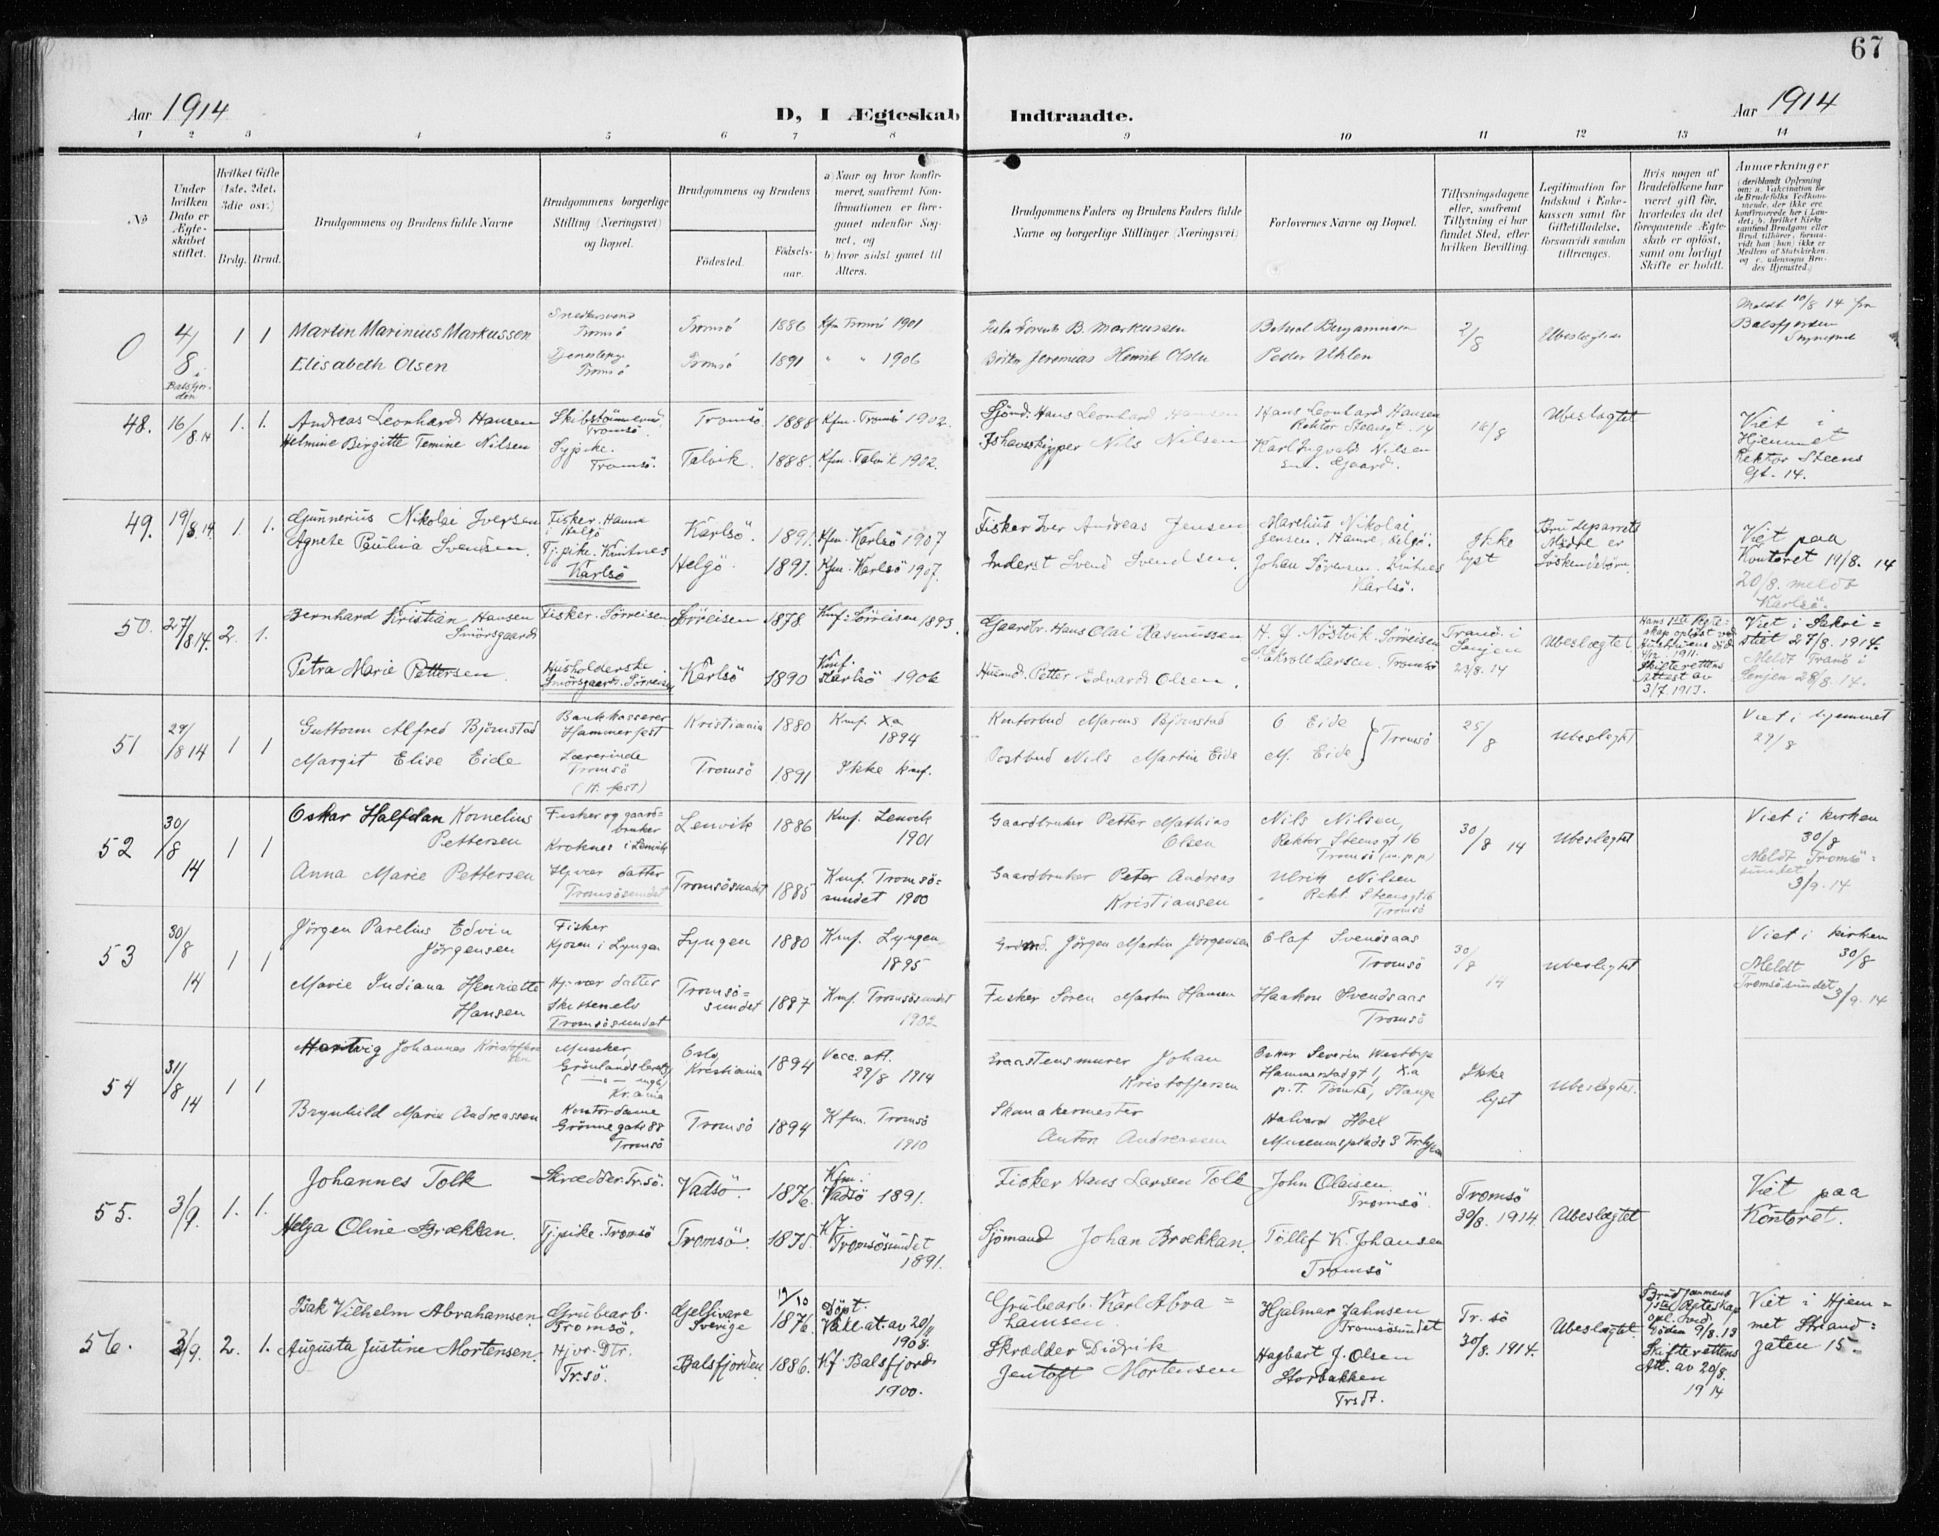 67
Aar 1914
D, I Ægteskab Indtraadte.
Aar 1914
1 2 3 4 5 6 7 8 9 10 11 12 13 14
No
Under hvilken Dato er Ægteskabet stiftet.
Hvilket Gifte (1ste, 2det, 3die osv.)
Brdg. Brud.
Brudgommens og Brudens fulde Navne
Brudgommens borgerlige Stilling (Næringsvei) og Bopæl.
Brudgommens og Brudens
Fødested.
Fødselsaar.
a Naar og hvor konfirmeret, saafremt Konfirmationen er foregaaet udenfor Sognet, og
b hvor sidst gaaet til Alters.
Brudgommens Faders og Brudens Faders fulde Navne og borgerlige Stillinger (Næringsvei)
Forlovernes Navne og Bopæl.
Tillysningsdagene eller, saafremt Tillysning ei har fundet Sted, efter hvilken Bevilling.
Legitimation for Indskud i Enkekassen samt for Giftetilladelse, forsaavidt saadan tiltrænges.
Hvis nogen af Brudefolkene har været gift før, hvorledes da det foregaaende Ægteskab er opløst, samt om lovligt Skifte er holdt.
Anmærkninger
0 4/8 i Balsfjorden 1 1
Martin Marinius Markussen
Tromsö
Tromsö 1886 Kfm Tromsö 1901
B. Markussen
2/8
Ubeslegtet
Meldt 10/8 14 fra
Balsfjorden
Elisabeth Olsen
Tromsö
Tromsö 1891 " " 1906
Jeremias Henrik Olsen
Peder Uhlen
48. 16/8.14 1. 1.
Andreas Leonhard Hansen
Tromsö.
Tromsö 1888 Kfm. Tromsö 1902.
Sjömd. Hans Leonhard Hansen
Hans Leonhard Hansen
Rektor Steensgt. 14
16/8
Ubeslægtet
Viet i
Hjemmet
Rektor Steens
Gt. 14.
Helmine Birgitte Temine Nilsen
Sypike.
Tromsö.
Talvik. 1888. Kfm. Talvik 1902.
Ishavsskipper Nils Nilsen
Karl Ingvald Nilsen
49. 19/8.14 1. 1.
Gunnerius Nikolai Iversen
Fisker. Hamre
i Helgö
Karlsö. 1891. Kfm. Karlsö 1907
Fisker Iver Andreas Jensen
Marelius Nikolai
Jensen, Hamre, Helgö.
Ikke
lyst
Brudeparrets
Mödre er
Söskendebörn.
Viet paa
Kontoret 19/8. 14
20/8. meldt
Karlsö.
Agnete Paulina Svendsen.
Tj.pike. Kvitnes
Karlsö
Helgö. 1891. Kfm. Karlsö 1907.
Inderst Svend Svendsen.
Johan Sörensen. Kvitnes
Karlsö.
50. 27/8.14. 2. 1.
Bernhard Kristian Hansen
Smörsgaard
Fisker. Sörreisen
Sörreisen 1878. Knf. Sörreisen 1893.
Gaardbr. Hans Olai Rasmussen
H. J. Nöstvik. Sörreisen
Tranö. i
Senjen
23/8. 14
Ubeslægtet
Hans 1ste Ægte-
skap oplöst ved
Hustruens död
1911.
Skifterettens
Attest av
3/7. 1913.
Viet i Sakri=
stiet 27/8. 1914.
Meldt Tranö i
Senjen 28/8. 14.
Petra Marie Pettersen.
Husholderske
Smörsgaard. Sörreisen
Karlsö 1890 Knf.
Karlsö 1906
Husmd. Petter Edvard Olsen.
Skroll Larsen. Tromsö
51 29/8 14 1 1
Guttorm Alfred Bjørnstad
Bankkasserer
Hammerfest
Kristiania 1880 Knf. Xa
1894
Kontorbud Marius Bjørnstad
O Eide
Tromsö
25/8
Ubeslegtet
Viet i hjemmet
29/8
Margit Elise Eide
Lærerinde
Tromsö
(H. fest)
Tromsö 1891 Ikke knf.
Postbud Nils Martin Eide
M. Eide
52 30/8 14 1 1
Oskar Halfdan Kornelius
Pettersen
Fisker og gaard=
bruker
Kroknes i Lenvik
Lenvik 1886 Knf. Lenvik
1901
Gaardbruker Petter Mathias
Olsen
Nils Nilsen,
Rektor Steensgt 16
Tromsö (m.p.p)
30/8 14
Ubeslegtet
Viet i kirken
30/8
Meldt Tromsö=
sundet
3/9. 14
Anna Marie Pettersen
Hj. vær. datter
Tromsösundet
Tromsösundet 1885 Knf. Tromsö=
sundet 1900
Gaardbruker Peter Andreas
Kristiansen
Ulrik Nilsen
Rekt. Steensgt 16
Tromsö
53 30/8 14 1 1
Jörgen Parelius Edvin
Jörgensen
Fisker
Kjosen i Lyngen
Lyngen 1880 Knf. Lyngen
1895
Jörgen Martin Jörgensen
Olaf Svendsaas
Tromsö
30/8 14
Ubeslegtet
Viet i kirken
30/8
Meldt
Tromsösundet
3/9. 14
Marie Indiana Henriette
Hansen
Hj. vær datter
Skittenelv
Tromsösundet
Tromsö=
sundet 1887 Knf. Tromsösundet
1902
Fisker Sören Martin Hansen
Haakon Svendsaas
Tromsö
54 31/8 14 1 1
Hartvig Johannes Kristoffersen
Musiker,
Kr.ania
Oslo
Kristiania 1894 Vacc. att.
29/8 1914
Graastensmurer Johan
Kristoffersen
Oskar Severin
Hammerstadgt 1, Xa
p.T. Tomte, Stange
Ikke
lyst
Ubeslegtet.
Brynhild Marie Andreassen
Kontordame
Grönnegate 88
Tromsö
Tromsö 1894 Kfm. Tromsö
1910
Skomakermester
Anton Andreassen
Halvard Hoel
Museumsplads 3 Tr.hjem
55. 3/9. 1. 1.
Johannes Tolk
Skrædder. Tr.sö.
Vadsö. 1876. Kfm.
Vadsö 1891.
Fisker Hans Larsen Tolk
John Olaisen
Tromsö.
Tromsö
30/8. 1914.
Ubeslægtet
Viet paa
Kontoret.
Helga Oline Brækkan.
Tj.pike. Tromsö
Tromsö. 1875. Kf.
Tromsösundet
1891.
Sjömand Johan Brækkan.
Tollef K. Johansen
Tromsö
56. 3/9. 2. 1.
Isak Vilhelm Abrahamsen.
Grubearb.
Tromsö.
Gjellivare
Sverige
19/10
1876. Döpt.
Vakc. at. av 20/11
1908.
Grubearb. Karl Abra=
hamsen.
Hjalmar Jahnsen
Tromsösundet
Tr. sö
30/8. 1914.
Ubeslægtet.
Brudgommens
1ste Ægteskap
opl. ved
Döden 9/8. 13
Skifterettens
Att. av 20/8.
1914
Viet i Hjem=
met Strand=
gaten 15.
Augusta Justine Mortensen.
Hjvr. Dtr.
Tr.sö.
Balsfjorden. 1886. Kf. Balsfjord
1900.
Skrædder Didrik
Jentoft Mortensen
Hagbart J. Olsen
Storbakken
Trsdt.